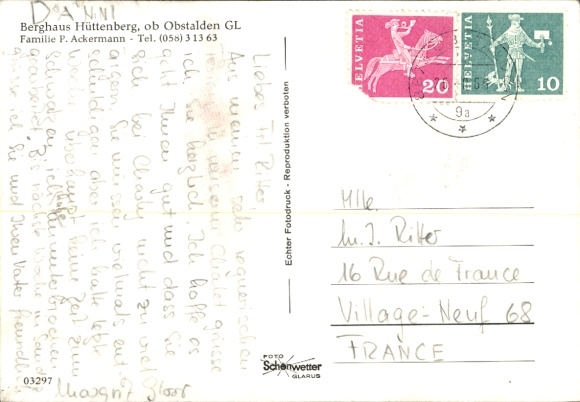 DANNI
Berghaus Hüttenberg, ob Obstalden GL
Familie P. Ackermann - Tel. (058) 3 13 63
Liebes Frl Ritter
Aus meinem sehr regnerischen
Ferien in meinem Chalet grüsse
ich sie herzlich. Ich hoffe es
geht Ihnen gut und dass Sie
sich bei Charly nicht zu viel
ärgern. Sie müssen vielmals ent
schuldigen aber ich hatte letzte
Woche überhaupt keine Zeit zum
schwatzen, ich habe
gearbeitet. Bis nächste Woche
grüsse ich Sie und Ihren Vater freundlich
Margrit
Echter Fotodruck - Reproduktion verboten
HELVETIA
20
HELVETIA
10
9a
Mlle.
M. J. Ritter
16 Rue de France
Village-Neuf 68
FRANCE
FOTO
Schönwetter
GLARUS
03297